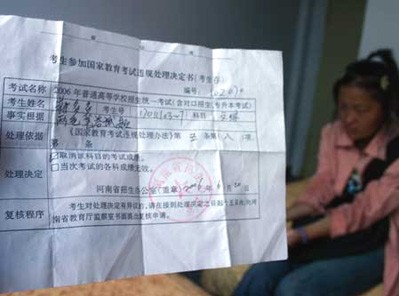 考生参加国家教育考试违规处理决定书(考生存)
编号:
考试名称 2006年普通高等学校招生统一考试(含对口招生、专升本考试)
考生姓名 考生号 科目
事实根据
处理依据 《国家教育考试违规处理办法》第 条第 八 项
第 条
处理决定 ☑取消该科目的考试成绩。
☐当次考试的各科成绩无效。
河南省招生办公室(盖章) 6月20日
复核程序 考生对处理决定有异议的,请在接到处理决定之日起十五天内向河
南省教育厅监察室书面提出复核申请。